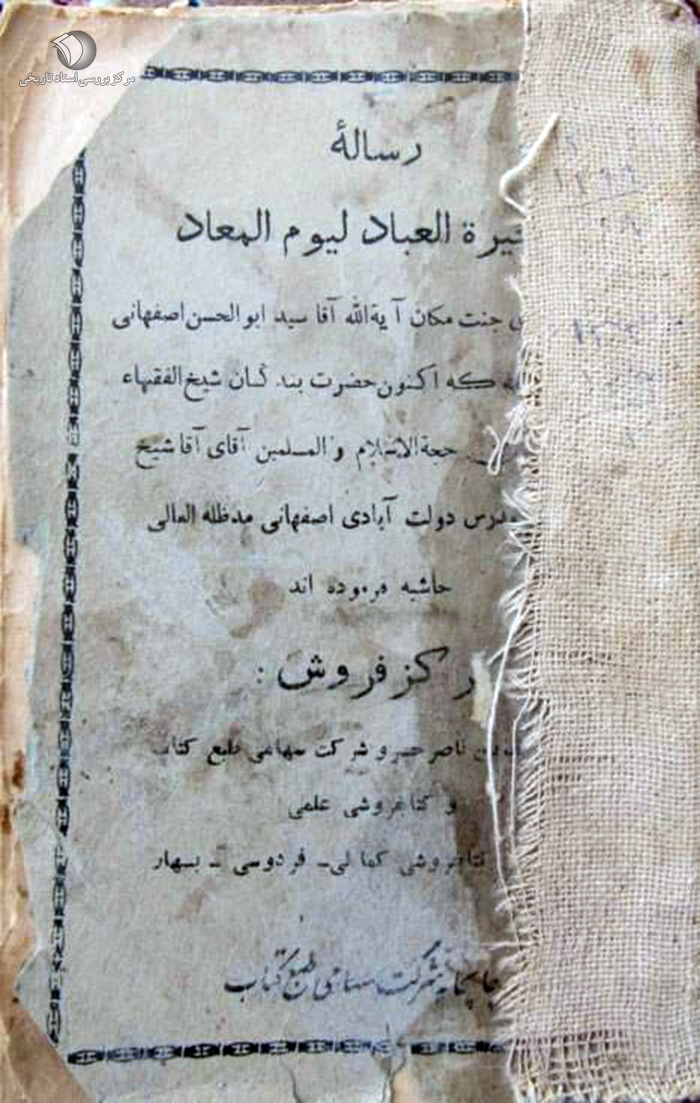 مرکز بررسی اسناد تاریخی
رسالهٔ
یرة العباد لیوم المعاد
جنت مکان آیةالله آقا سید ابوالحسن اصفهانی
که اکنون حضرت بندگان شیخ الفقهاء
حجةالاسلام والمسلمین آقای آقا شیخ
مدرس دولت آبادی اصفهانی مدظله العالی
حاشیه فرموده اند
رکز فروش :
ناصر خسرو شرکت سهامی طبع کتاب
و کتابفروشی علمی
کتابفروشی کمالی - فردوسی - بسهار
چاپخانه شرکت سهامی طبع کتاب